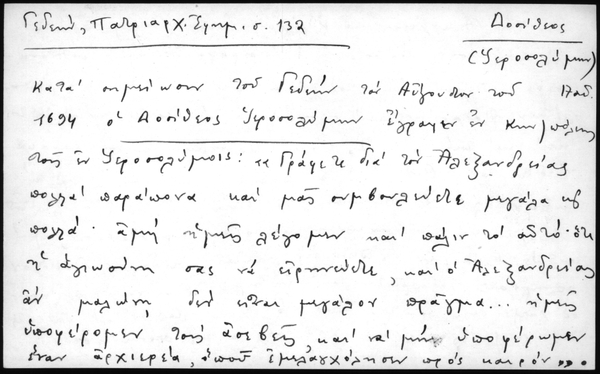 Γεδεών, Πατριαρχ. Έφημ. σ. 132
Δοσίθεος
(Ἱεροσολύμων)
Κατά σημείωσιν τοῦ Γεδεών τόν Αὔγουστον τοῦ
1694 ὁ Δοσίθεος Ἱεροσολύμων ἔγραφεν ἐν Κων/πόλεως
τοῖς ἐν Ἱεροσολύμοις: "Γράφετε διά τόν Ἀλεξανδρείας
πολλά παράπονα καί μᾶς συμβουλεύετε μεγάλα κ
πολλά· ἀμή ἡμεῖς λέγομεν καί πάλιν τό αὐτό· ὅτι
ἡ ἁγιωσύνη σας νά εἰρηνεύετε, καί ὁ Ἀλεξανδρείας
ἄν μαλώνῃ, δέν εἶναι μεγάλον πρᾶγμα... ἡμεῖς
ὑποφέρομεν τούς ἀσεβεῖς, καί νά μήν ὑποφέρωμεν
ἕναν ἀρχιερέα, ὁποῦ ἐμελαγχόλησεν πρός καιρόν...».